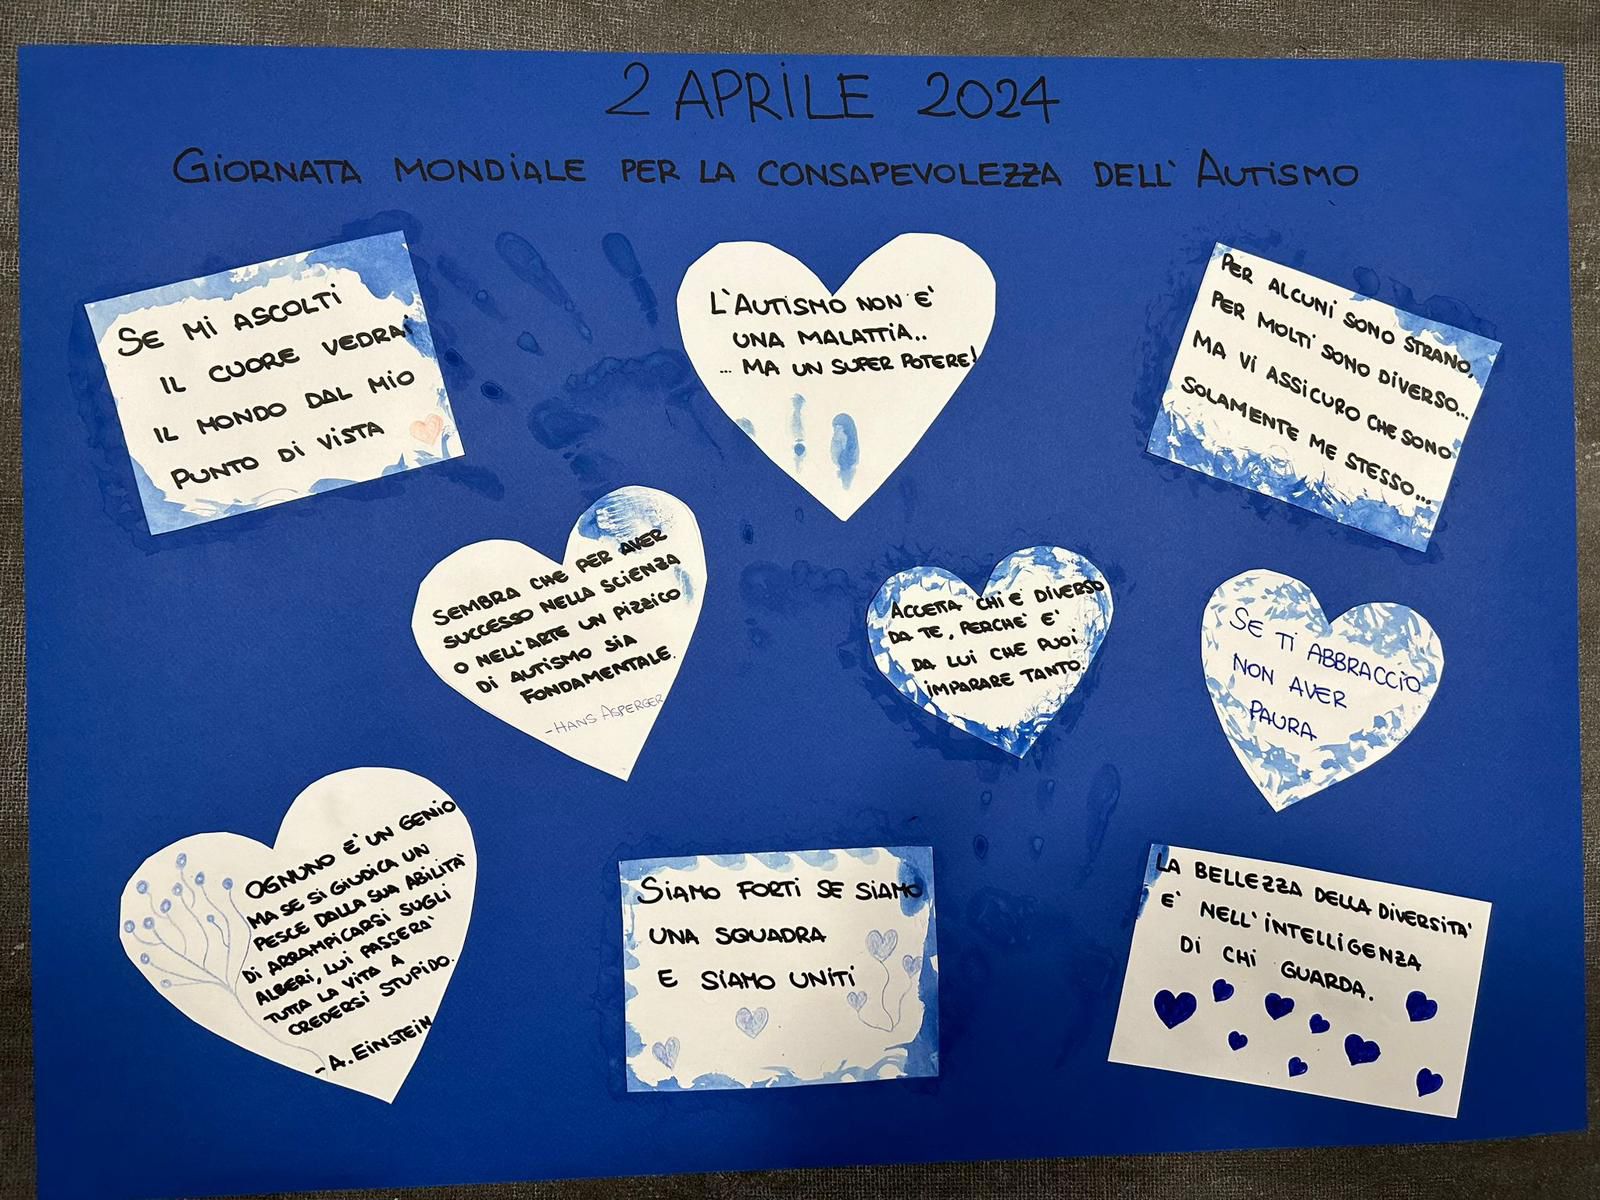 2 APRILE 2024
GIORNATA MONDIALE PER LA CONSAPEVOLEZZA DELL' AUTISMO
SE MI ASCOLTI
IL CUORE VEDRAI
IL MONDO DAL MIO
PUNTO DI VISTA
L'AUTISMO NON E'
UNA MALATTIA..
... MA UN SUPER POTERE!
PER ALCUNI SONO STRANO,
PER MOLTI SONO DIVERSO...
MA VI ASSICURO CHE SONO
SOLAMENTE ME STESSO...
SEMBRA CHE PER AVER
SUCCESSO NELLA SCIENZA
O NELL'ARTE UN PIZZICO
DI AUTISMO SIA
FONDAMENTALE.
-HANS ASPERGER
ACCETTA CHI E' DIVERSO
DA TE, PERCHE' E'
DA LUI CHE PUOI
IMPARARE TANTO.
SE TI ABBRACCIO
NON AVER
PAURA
OGNUNO E' UN GENIO
MA SE SI GIUDICA UN
PESCE DALLA SUA ABILITA'
DI ARRAMPICARSI SUGLI
ALBERI, LUI PASSERA'
TUTTA LA VITA A
CREDERSI STUPIDO.
-A. EINSTEIN
SIAMO FORTI SE SIAMO
UNA SQUADRA
E SIAMO UNITI
LA BELLEZZA DELLA DIVERSITA'
E' NELL'INTELLIGENZA
DI CHI GUARDA.